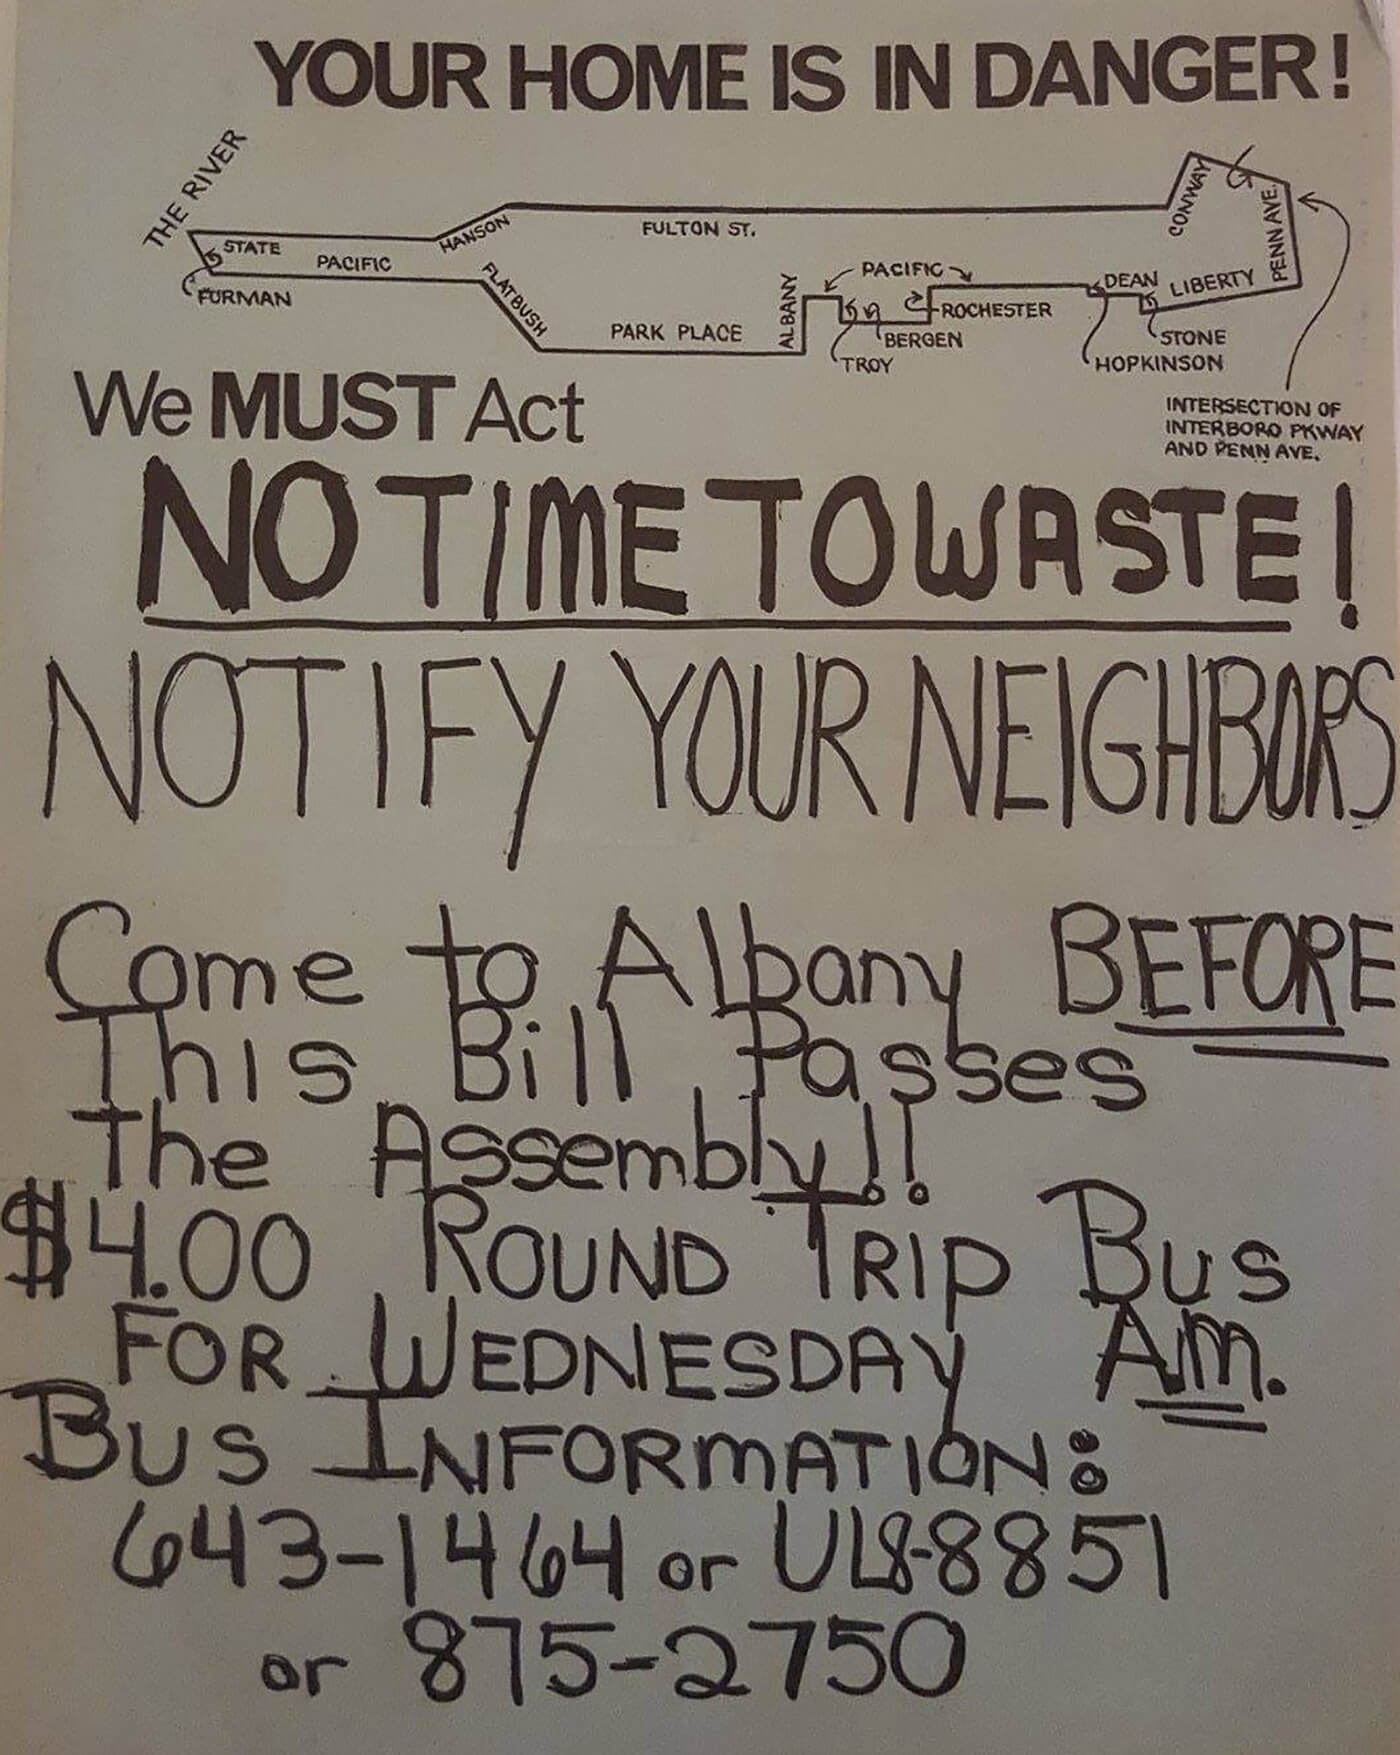 YOUR HOME IS IN DANGER!
THE RIVER
STATE
PACIFIC
FURMAN
HANSON
FLATBUSH
FULTON ST.
PARK PLACE
ALBANY
PACIFIC
TROY
BERGEN
ROCHESTER
DEAN
HOPKINSON
STONE
LIBERTY
CONWAY
PENN AVE.
INTERSECTION OF
INTERBORO PKWAY
AND PENN AVE.
We MUST Act
NO TIME TO WASTE!
NOTIFY YOUR NEIGHBORS
Come to Albany BEFORE
This Bill Passes
The Assembly!!
$4.00 ROUND TRIP BUS
FOR WEDNESDAY AM.
BUS INFORMATION:
643-1464 or UL8-8851
or 875-2750